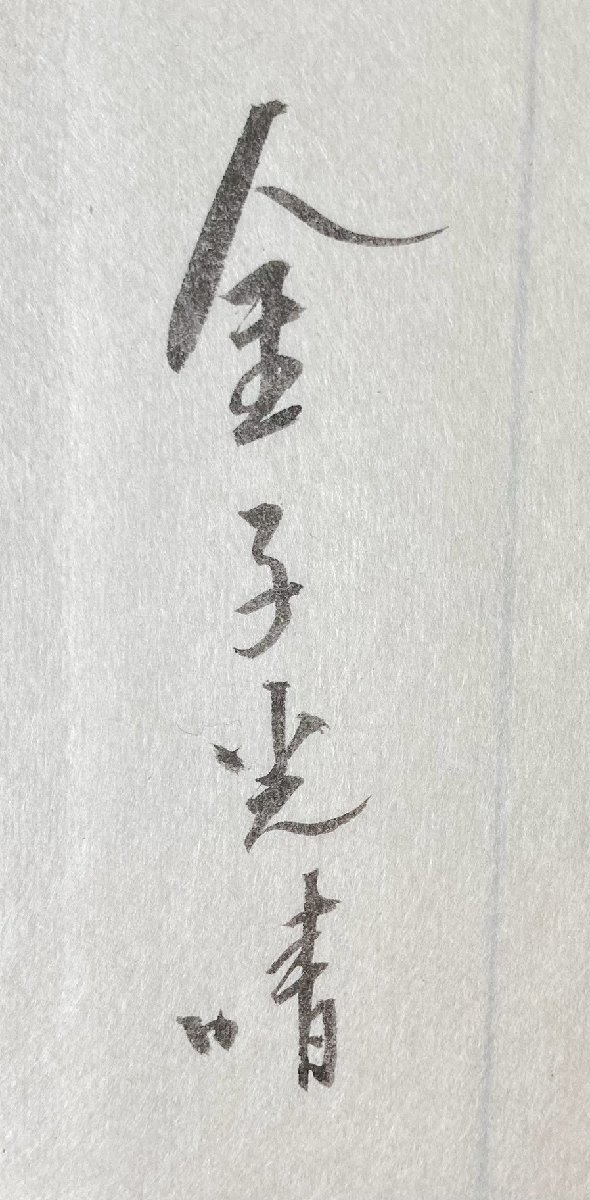 金子光晴